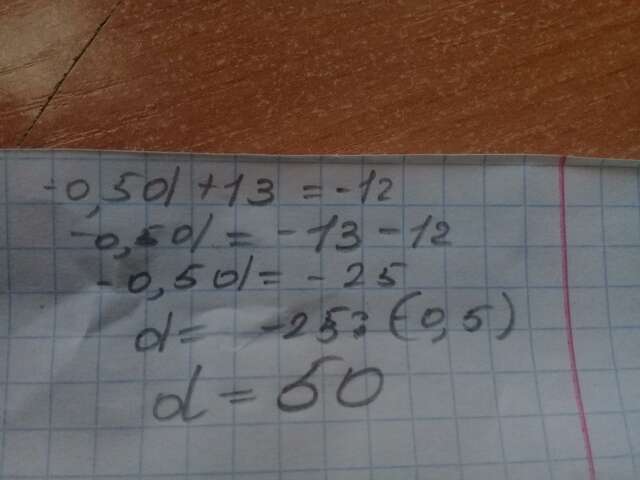 -0,5d+13=-12
-0,5d=-13-12
-0,5d=-25
d= -25:(-0,5)
d=50